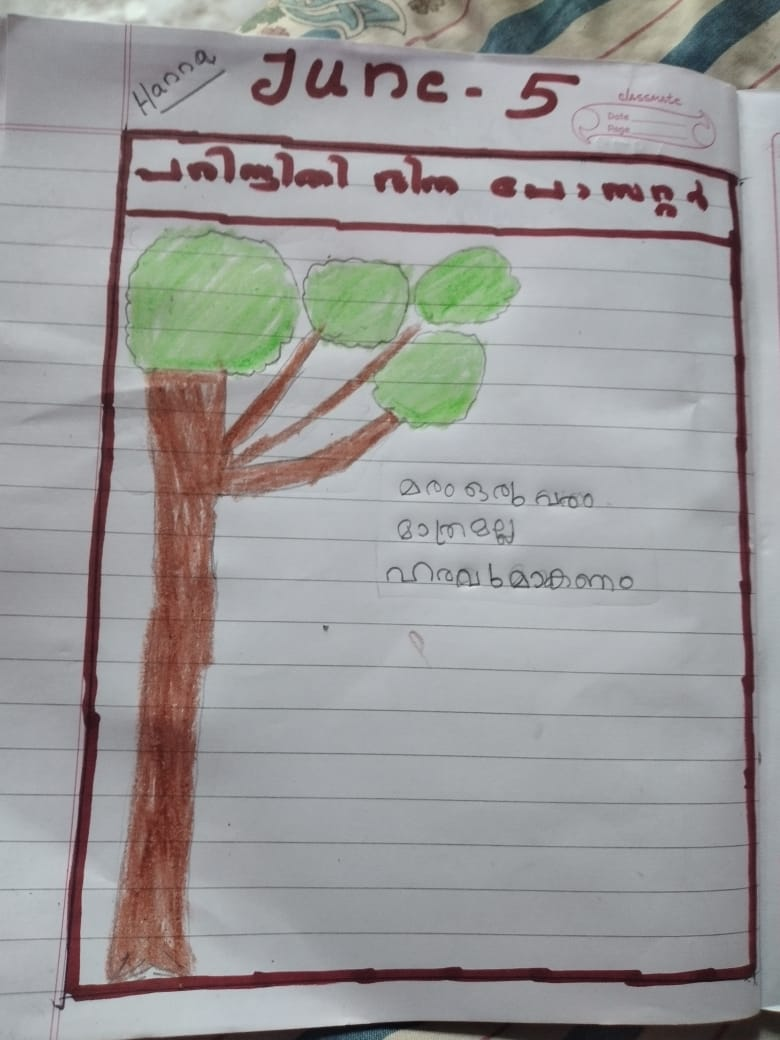 Hanna
June - 5
classmate
Date
Page
പരിസ്ഥിതി ദിന പോസ്റ്റർ
മരം ഒരു വരം
മാത്രമല്ല